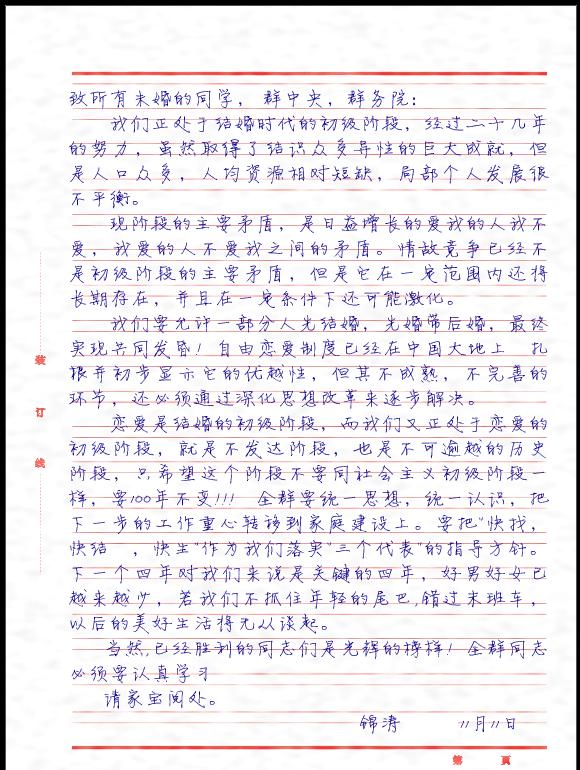 致所有未婚的同学，群中央，群务院：
我们正处于结婚时代的初级阶段，经过二十几年
的努力，虽然取得了结识众多异性的巨大成就，但
是人口众多，人均资源相对短缺，局部个人发展很
不平衡。
现阶段的主要矛盾，是日益增长的爱我的人我不
爱，我爱的人不爱我之间的矛盾。情敌竞争已经不
是初级阶段的主要矛盾，但是它在一定范围内还得
长期存在，并且在一定条件下还可能激化。
我们要允许一部分人先结婚，先婚带后婚，最终
实现共同发昏！自由恋爱制度已经在中国大地上 扎
根并初步显示它的优越性，但其不成熟，不完善的
环节，还必须通过深化思想改革来逐步解决。
恋爱是结婚的初级阶段，而我们又正处于恋爱的
初级阶段，就是不发达阶段，也是不可逾越的历史
阶段，只希望这个阶段不要同社会主义初级阶段一
样，要100年不变!!! 全群要统一思想，统一认识，把
下一步的工作重心转移到家庭建设上。要把"快找，
快结 ，快生"作为我们落实"三个代表"的指导方针。
下一个四年对我们来说是关键的四年，好男好女已
越来越少，若我们不抓住年轻的尾巴,错过末班车，
以后的美好生活将无从谈起。
当然,已经胜利的同志们是光辉的榜样！全群同志
必须要认真学习
请家宝阅处。
锦涛 11月11日
装
订
线
第 页